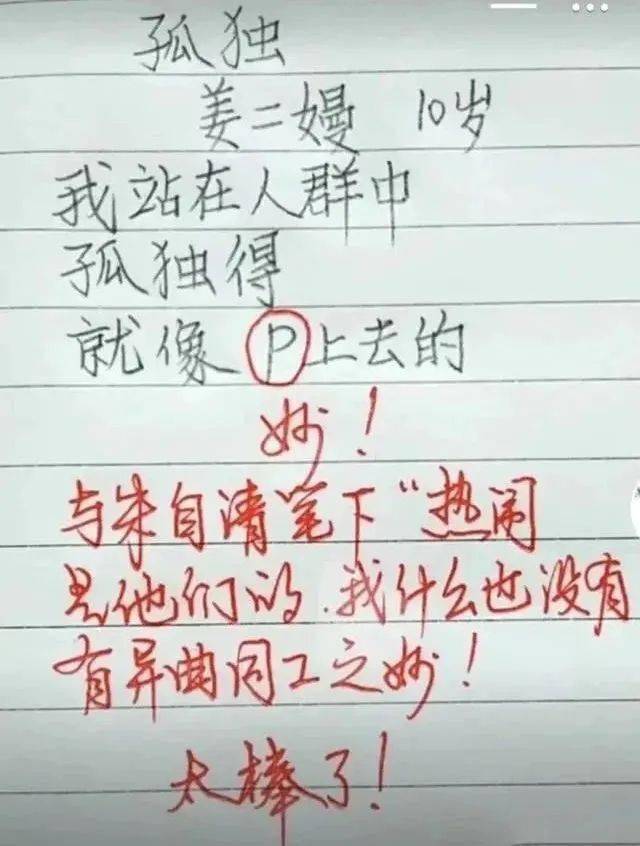 孤独
姜二嫚 10岁
我站在人群中
孤独得
就像P上去的
妙！
与朱自清笔下“热闹
是他们的.我什么也没有
有异曲同工之妙！
太棒了！